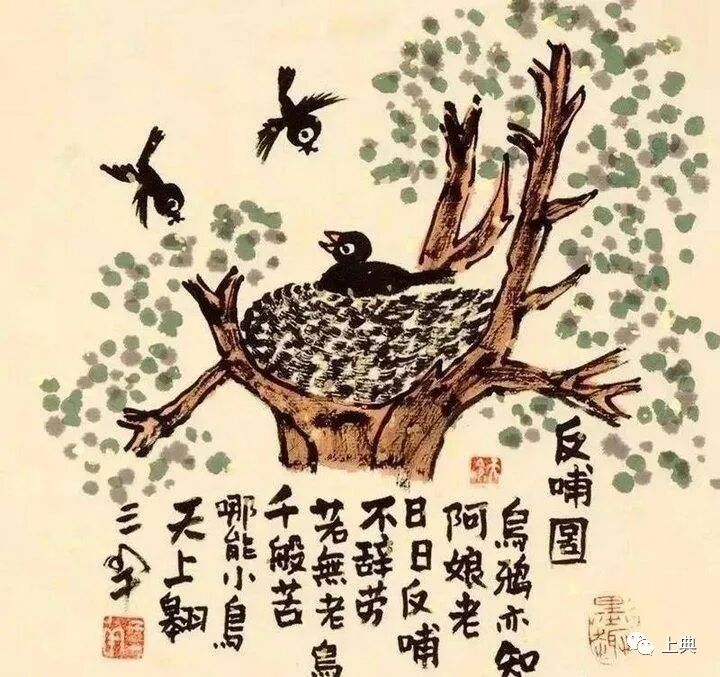 反哺图
烏鴉亦知
阿娘老
日日反哺
不辞劳
若無老烏
千般苦
哪能小鳥
天上翱
上典